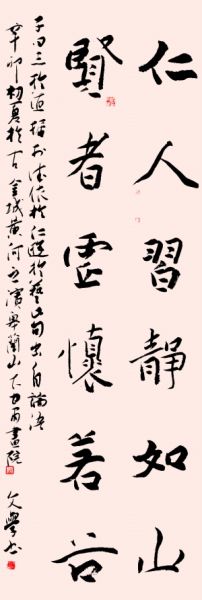 仁人習靜如山
賢者虛懷若谷
子曰志於道據於德依於仁遊於藝此句出自論語
辛卯初夏於古金城黃河之濱皋蘭山下力南畫院
文學書